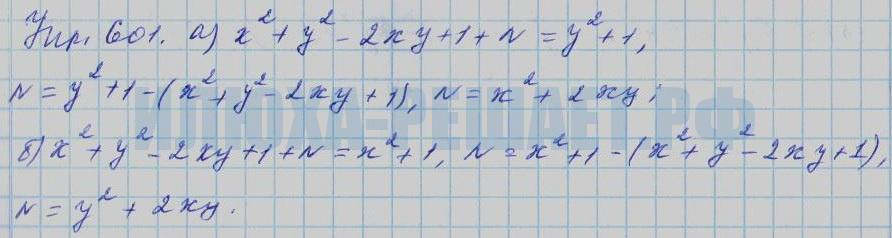 Упр. 601. а) x² + y² - 2xy + 1 + N = y² + 1,
N = y² + 1 - (x² + y² - 2xy + 1), N = x² + 2xy;
б) x² + y² - 2xy + 1 + N = x² + 1, N = x² + 1 - (x² + y² - 2xy + 1),
N = y² + 2xy.